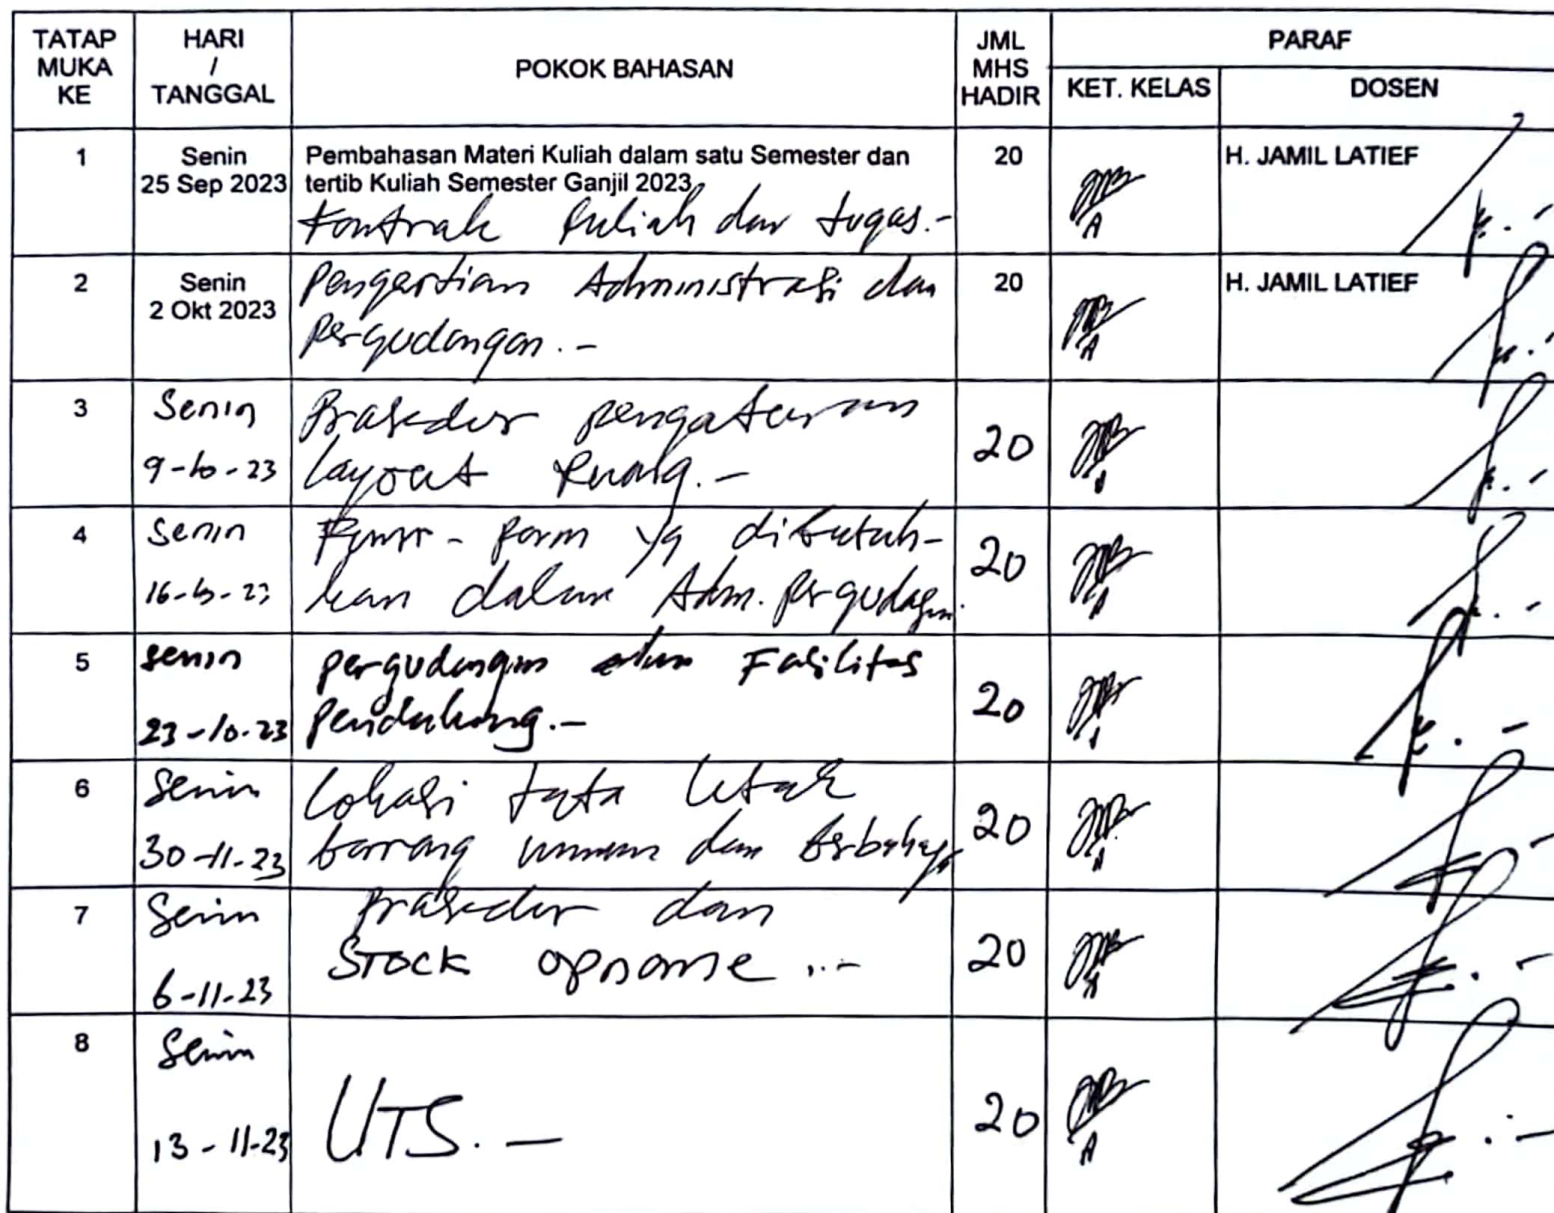 TATAP MUKA KE
HARI / TANGGAL
POKOK BAHASAN
JML MHS HADIR
PARAF
KET. KELAS
DOSEN
1
Senin
25 Sep 2023
Pembahasan Materi Kuliah dalam satu Semester dan
tertib Kuliah Semester Ganjil 2023
Kontrak Kuliah dan tugas.-
20
H. JAMIL LATIEF
2
Senin
2 Okt 2023
Pengertian Administrasi dan
Pergudangan.-
20
H. JAMIL LATIEF
3
Senin
9-10-23
Prosedur pengaturan
layout Ruang.-
20
4
Senin
16-10-23
Form - form yg dibutuh-
kan dalam Adm. Pergudangan.
20
5
Senin
23-10-23
pergudangan dan Fasilitas
Pendukung.-
20
6
Senin
30-11-23
Lokasi tata letak
barang umum dan berbahaya
20
7
Senin
6-11-23
Prosedur dan
Stock opname .-
20
8
Senin
13-11-23
UTS. -
20